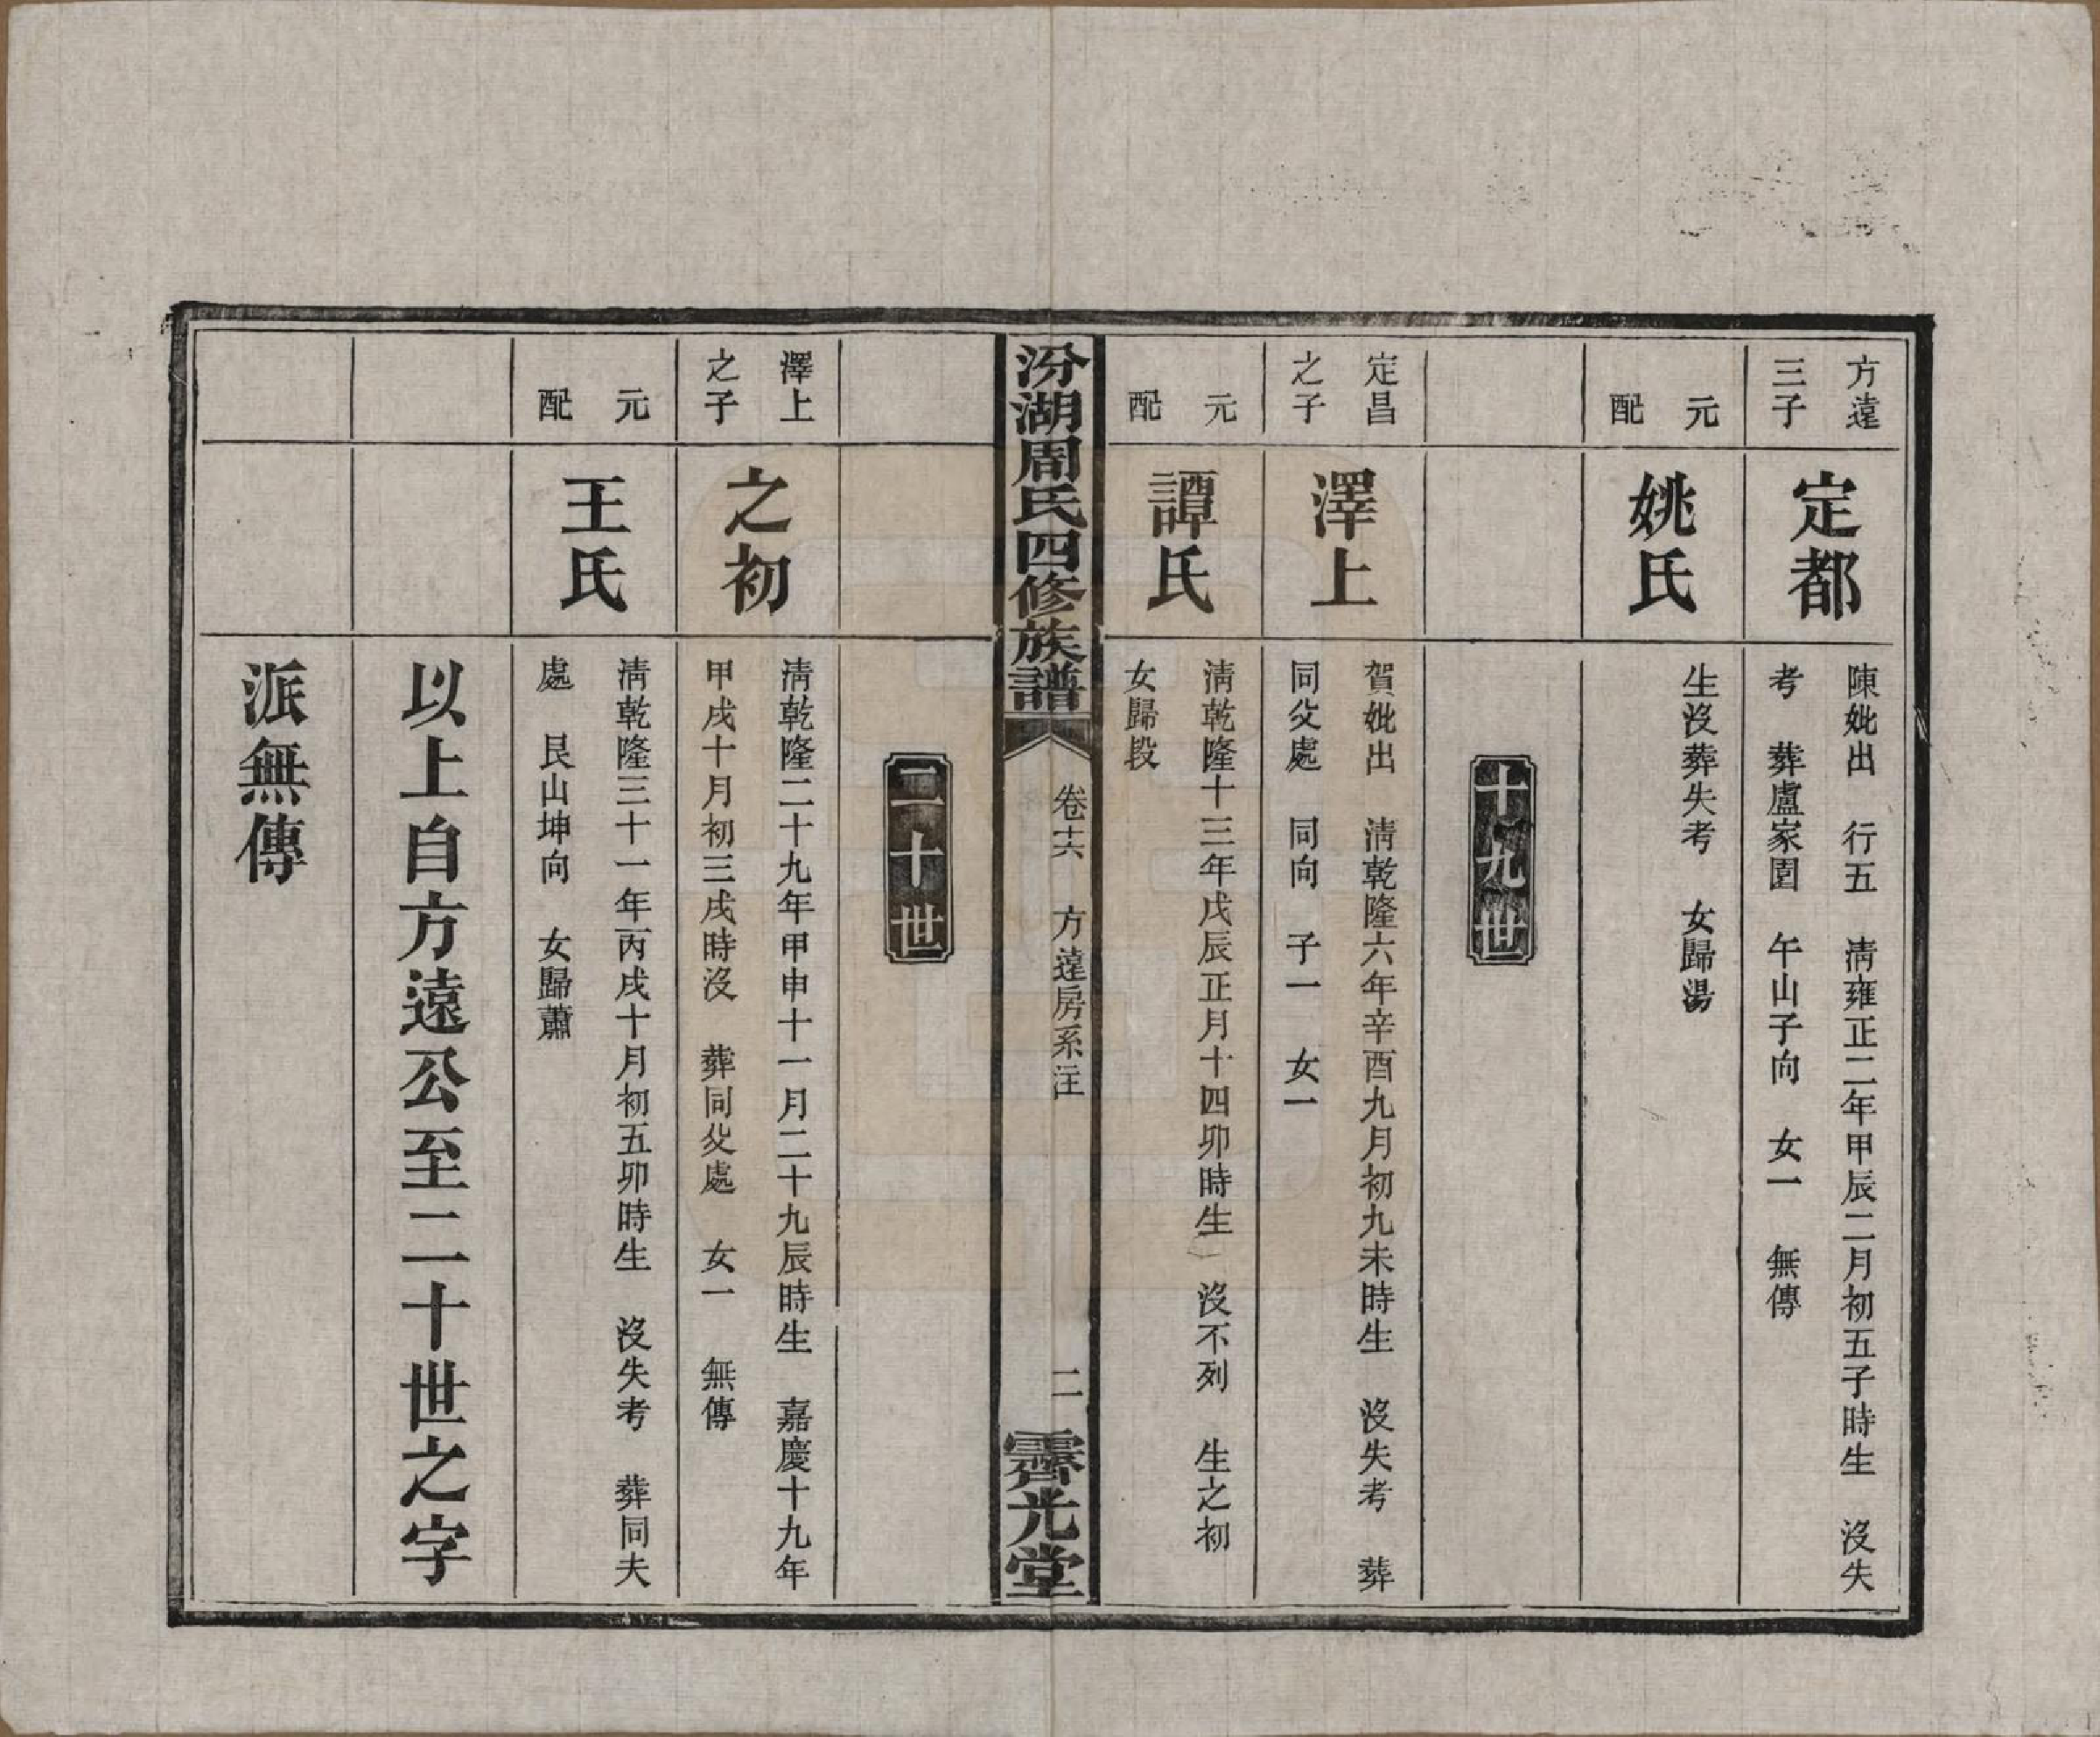 方遠
三子
定都
陳妣出　行五　淸雍正二年甲辰二月初五子時生　沒失
考　葬盧家園　午山子向　女一　無傳
元
配
姚氏
生沒葬失考　女歸湯
十九世
定昌
之子
澤上
賀妣出　淸乾隆六年辛酉九月初九未時生　沒失考　葬
同父處　同向　子一　女一
元
配
譚氏
淸乾隆十三年戊辰正月十四卯時生　沒不列　生之初
女歸段
汾湖周氏四修族譜
卷十六　方遠房系注
二
霽光堂
二十世
澤上
之子
之初
淸乾隆二十九年甲申十一月二十九辰時生　嘉慶十九年
甲戌十月初三戌時沒　葬同父處　女一　無傳
元
配
王氏
淸乾隆三十一年丙戌十月初五卯時生　沒失考　葬同夫
處　艮山坤向　女歸蕭
以上自方遠公至二十世之字
派無傳